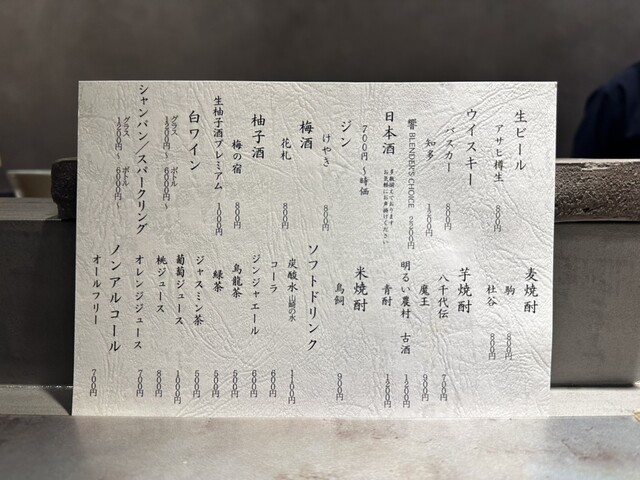 生ビール
アサヒ樽生 800円
ウイスキー
バスカー 800円
知多 1200円
響 BLENDER'S CHOICE 2800円
日本酒
多数揃えております
お気軽にお声掛けください
700円〜時価
ジン
けやき 800円
梅酒
花札 800円
柚子酒
梅の宿 800円
生柚子酒プレミアム 1000円
白ワイン
グラス ボトル
1200円〜 6000円〜
シャンパン／スパークリング
グラス ボトル
1200円〜 6000円〜
麦焼酎
駒 800円
杜谷 800円
芋焼酎
八千代伝 700円
魔王 900円
明るい農村 古酒 1200円
青酎 1200円
米焼酎
鳥飼 900円
ソフトドリンク
炭酸水 山崎の水 1100円
コーラ 600円
ジンジャエール 600円
烏龍茶 500円
緑茶 500円
ジャスミン茶 500円
葡萄ジュース 1000円
桃ジュース 800円
オレンジジュース 700円
ノンアルコール
オールフリー 700円